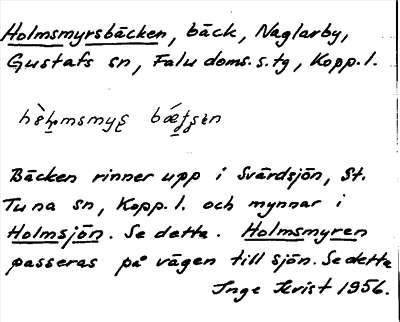 Holmsmyrsbäcken, bäck, Naglarby,
Gustafs sn, Falu doms.s.tg, Kopp.l.
Bäcken rinner upp i Svärdsjön, St.
Tuna sn, Kopp.l. och mynnar i
Holmsjön. Se detta. Holmsmyren
passeras på vägen till sjön. Se detta
Inge Kvist 1956.